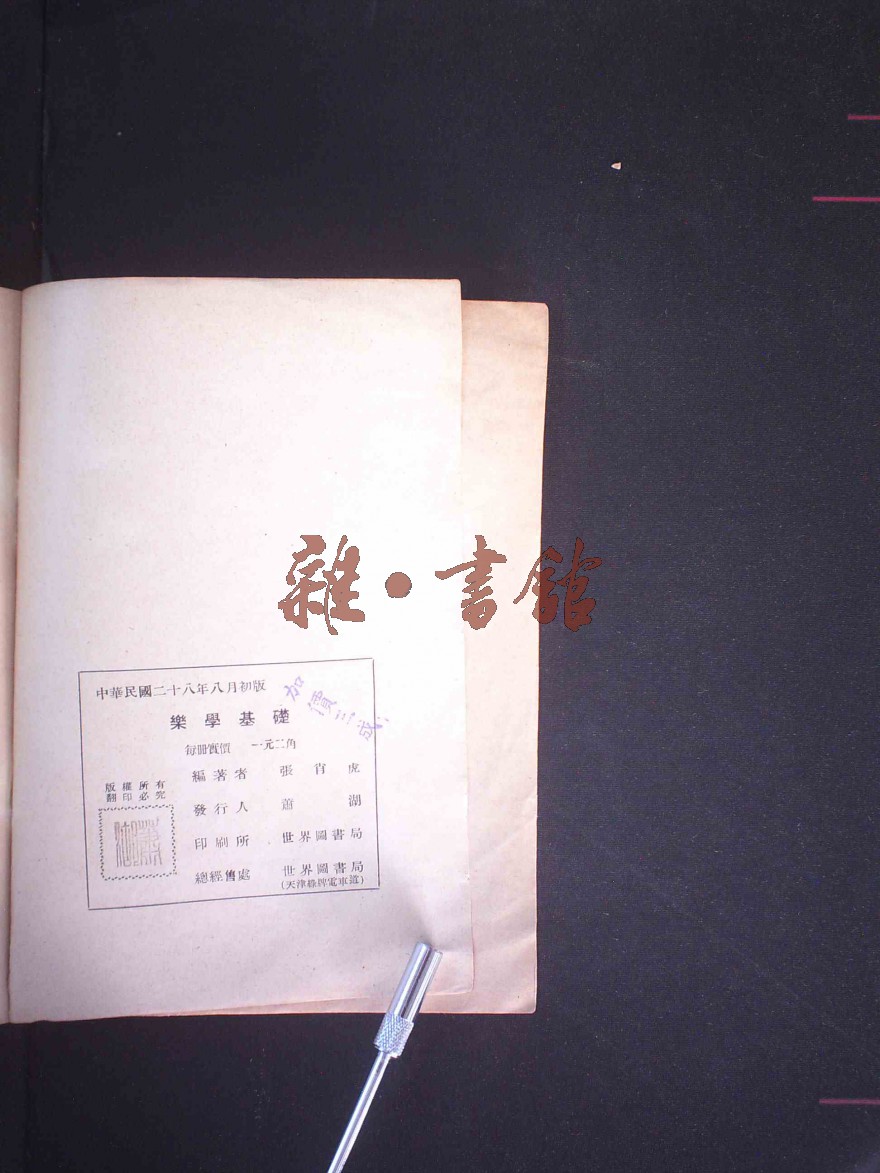 雜·書館
中華民國二十八年八月初版
加價三成
樂學基礎
每冊實價 一元二角
編著者 張肖虎
版權所有
翻印必究
發行人 蕭湖
印刷所 世界圖書局
總經售處 世界圖書局
(天津綠牌電車道)